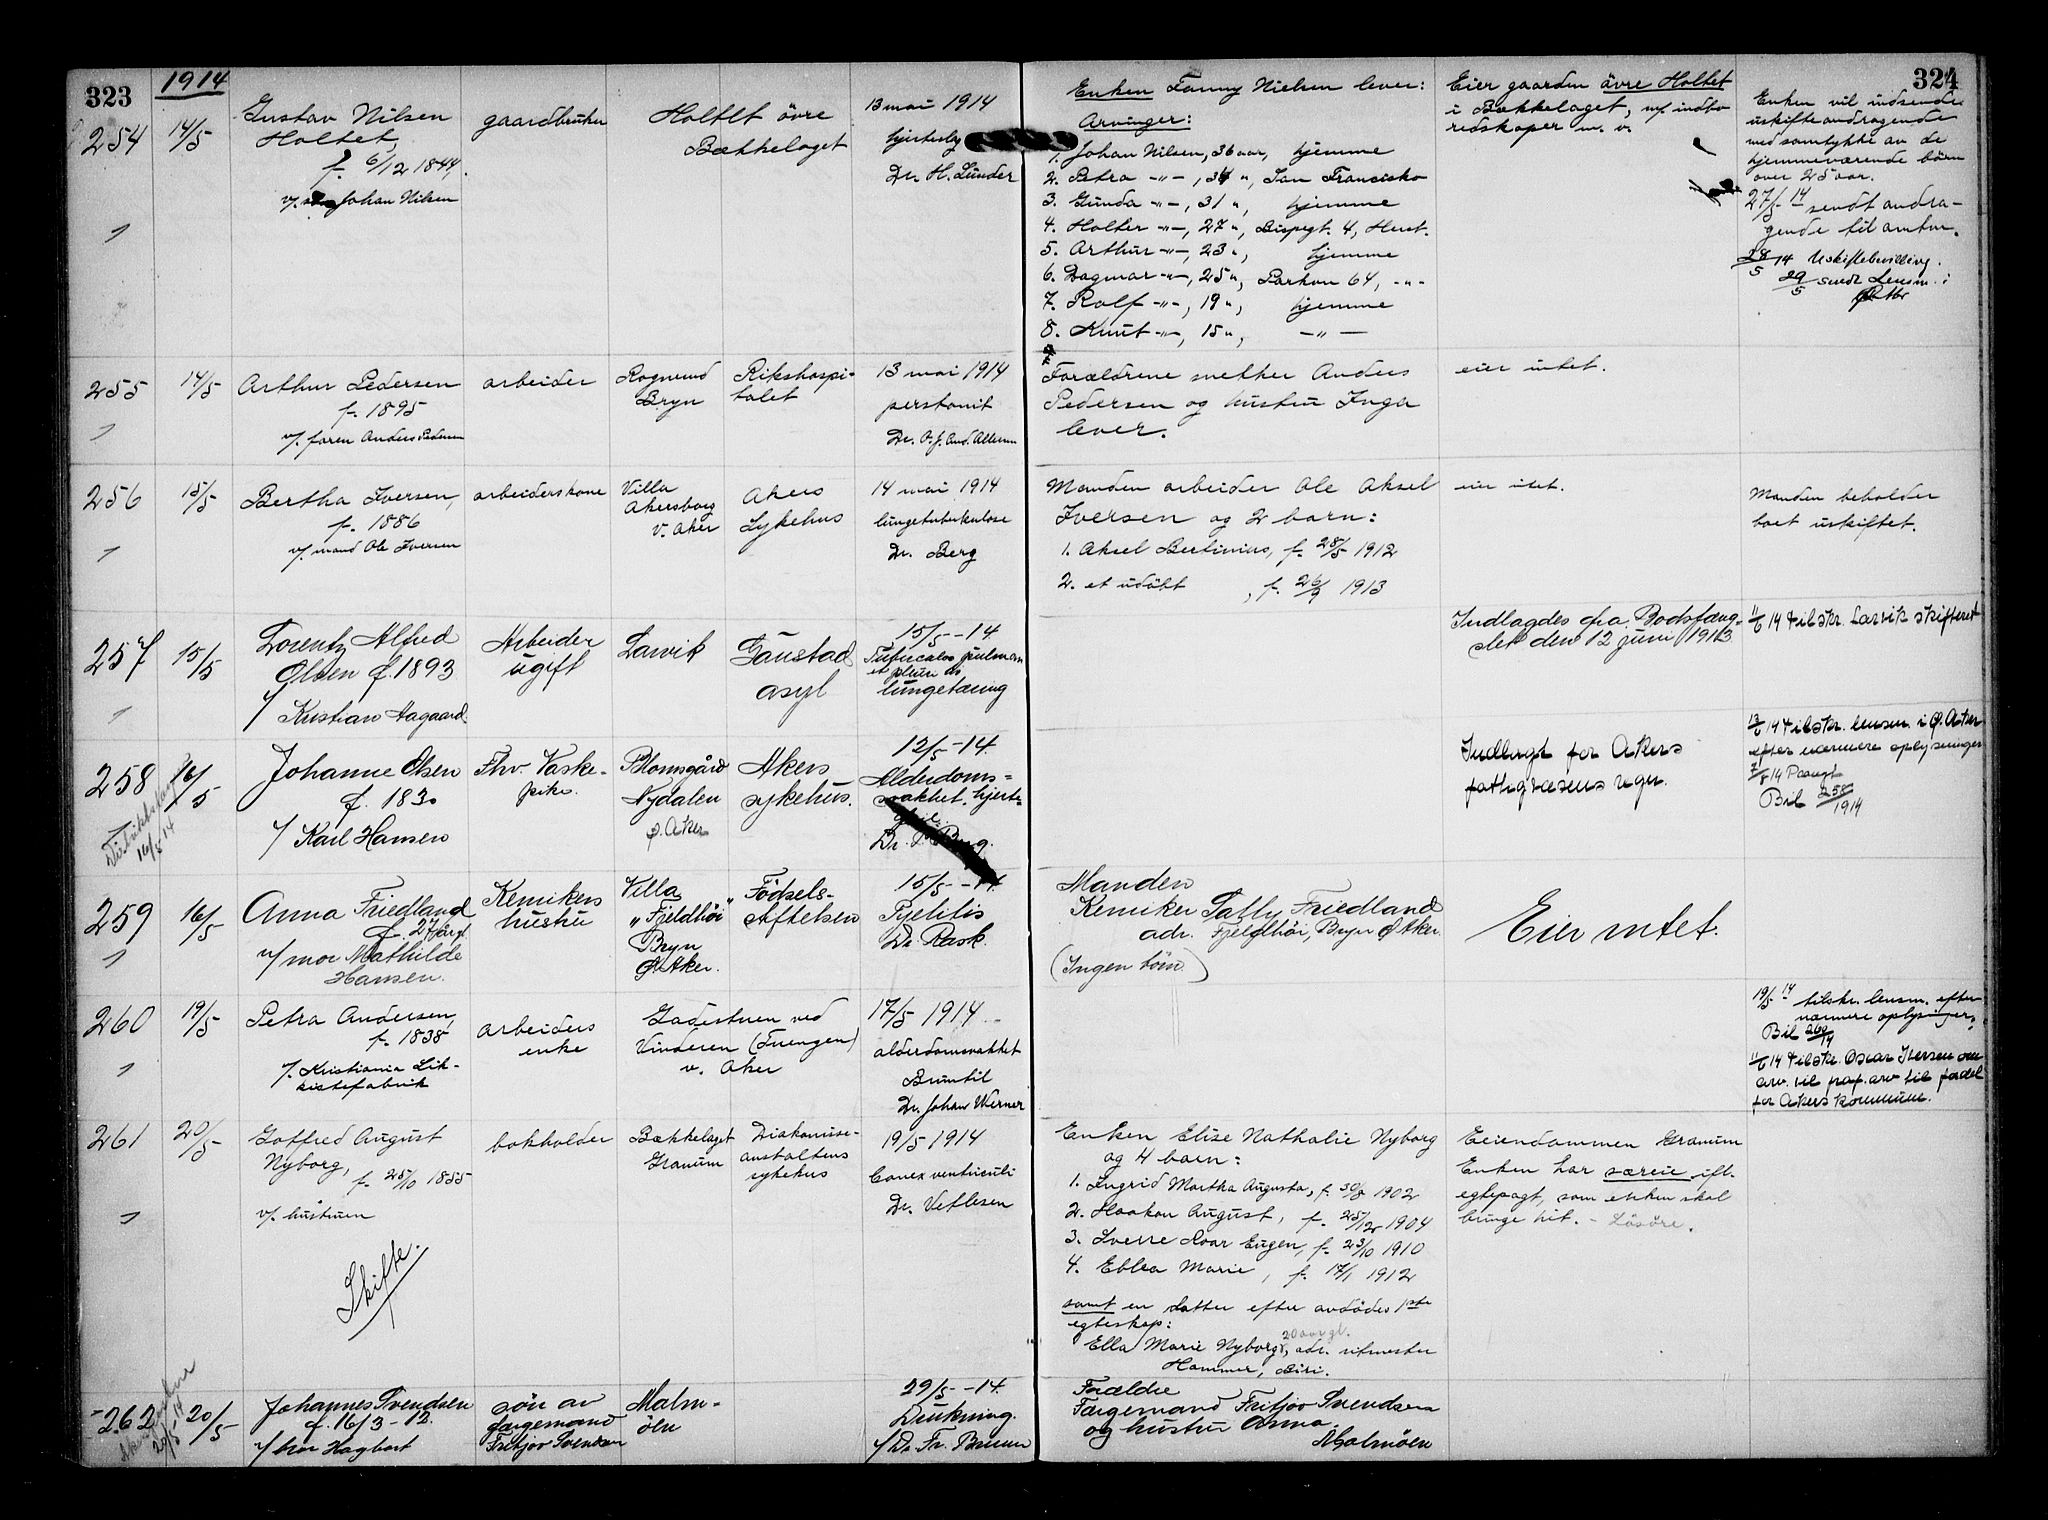 323
1914
324
254
14/5
Gustav Nilsen
Holtet,
f. 6/12 1844.
v/ Johan Nilsen
gaardbruker
Holtet övre
Bækkelaget
13 mai 1914
Dr. H. Lunder
Enken Fanny Nielsen lever:
Arvinger:
1. Johan Nilsen, 36 aar, hjemme
2. Petra -"-, 34 ", San Francisko
3. Gunda -"-, 31 ", hjemme
4. Holter -"-, 27 ", Bispegt. 4, Hust.
5. Arthur -"-, 23 ", hjemme
6. Dagmar -"-, 25 ", Parkvn 64, -"-
7. Rolf -"-, 19 ", hjemme
8. Knut -"-, 15 ", -"-
Eier gaarden övre Holtet
i Bækkelaget, m/ indbo
redskaper m. v.
Enken vil indsende
uskifteandragende
med samtykke av de
hjemmeværende börn
over 25 aar.
27/5 14 sendt andra-
gende til amtm.
28/5 14 Uskiftebevilling.
29/5 sendt Lensm. i
255
14/5
Arthur Pedersen
f. 1895
v/ faren Anders Pedersen
arbeider
Rognerud
Bryn
Rikshospi-
talet
13 mai 1914
peritonit
Forældrene snekker Anders
Pedersen og hustru Inga
lever.
eier intet.
256
15/5
Bertha Iversen,
f. 1886
v/ mand Ole Iversen
arbeiderskone
Villa
Akersborg
v. Aker
Akers
Sykehus
14 mai 1914
lungetuberkulose
Dr. Berg
Manden arbeider Ole Aksel
Iversen og 2 barn:
1. Aksel Bertinius, f. 28/5 1912
2. et udöbt , f. 26/9 1913
eier intet.
Manden beholder
boet uskiftet.
257
15/5
Lorentz Alfred
Olsen f. 1893
/ Kristian Aagaard
Arbeider
ugift
Larvik
Gaustad
asyl
15/5-14.
lungetæring
Indlagdes fra Bodsfæng-
slet den 12 juni 1913
11/6 14 tilskr. Larvik skifteret
258
16/5
Distriktslæge
16/5 14
Johanne Olsen
f. 1830
/ Karl Hansen
Fhv. Vaske-
pike.
Blomsgård
Nydalen
Ø. Aker
Akers
sykehus.
12/5-14.
Alderdoms-
svakhet. hjerte-
Dr. P. Berg.
Indlagt for Akers
fattigvæsens regn.
13/6 14 tilskr. lensm. i Ø. Aker
efter nærmere oplysninger
7/8 14 Paangt
Bil 258/1914
259
16/5
Anna Friedland
f. 27 årgl
v/ mor Mathilde
Hansen.
Kemikers
hustru
Villa
"Fjeldhöi"
Bryn
Ø Aker.
Födsels-
stiftelsen
15/5-14.
Pyelitis
Dr. Rask.
Manden
Kemiker Sally Friedland
adr. Fjeldhöi, Bryn Ø Aker.
(Ingen börn)
Eier intet.
260
19/5
Petra Andersen,
f. 1838
/. Kristiania Lik-
kistefabrik
arbeiders
enke
Gadestuen ved
Vinderen (Tuengen)
v. Aker
17/5 1914
alderdomssvakhet
Dr. Johan Werner
19/5 14 tilskr. lensm. efter
nærmere oplysninger.
Bil 260/14
11/6 14 tilskr. Oscar Iversen om
arv. vil fraf. arv til fordel
for Akers kommune.
261
20/5
Gotfred August
Nyborg,
f. 25/10 1855
v/. hustruen
Skifte.
bokholder
Bækkelaget
Granum
Diakonisse-
anstaltens
sykehus
19/5 1914
Cancer ventriculi
Dr. Vetlesen
Enken Elise Nathalie Nyborg
og 4 barn:
1. Ingrid Martha Augusta, f. 30/8 1902
2. Haakon August, f. 25/12 1904
3. Sverre Roar Eugen, f. 23/10 1910
4. Ebba Marie, f. 17/1 1912
samt en datter efter avdödes 1ste
egteskap:
20 aar gl.
Ella Marie Nyborg, adr. ritmester
Hammer, Biri.
Eiendommen Granum
Enken har særeie ift.
egtepagt, som enken skal
bringe hit. - Lösöre.
262
20/5
Johannes Svendsen
f. 16/3-12.
v/ bror Hagbart
sön av
færgemand
Fritjov Svendsen
Malm-
öen
29/5-14.
Drukning.
/ Dr. Fr. Bruun
Forældre
Færgemand Fritjov Svendsen
og hustru Anna.
Malmöen